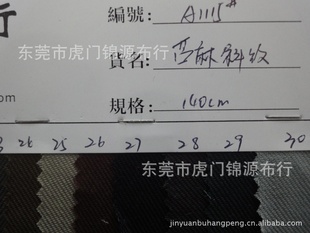 行
編號: A1115#
东莞市虎门锦源布行
貨名: 亞麻斜紋
om
規格: 140cm
24 25 26 27 28 29 30
东莞市虎门锦源布行
jinyuanbuhangpeng.cn.1688.com